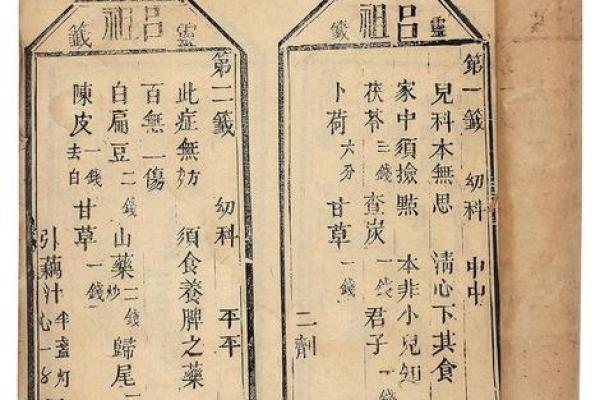 呂祖
靈籤
第一籤 幼科 中中
兒科本無思 清心下其食
家中須撿點 本非小兒知
茯苓三錢 查炭一錢 君子一錢
卜荷六分 甘草一錢 二劑
呂祖
靈籤
第二籤 幼科 平平
此症無妨 須食養脾之藥
百無一傷
白扁豆二錢 山藥炒二錢 歸尾一
陳皮去白一錢 甘草一錢
引藕汁半盞灯心一